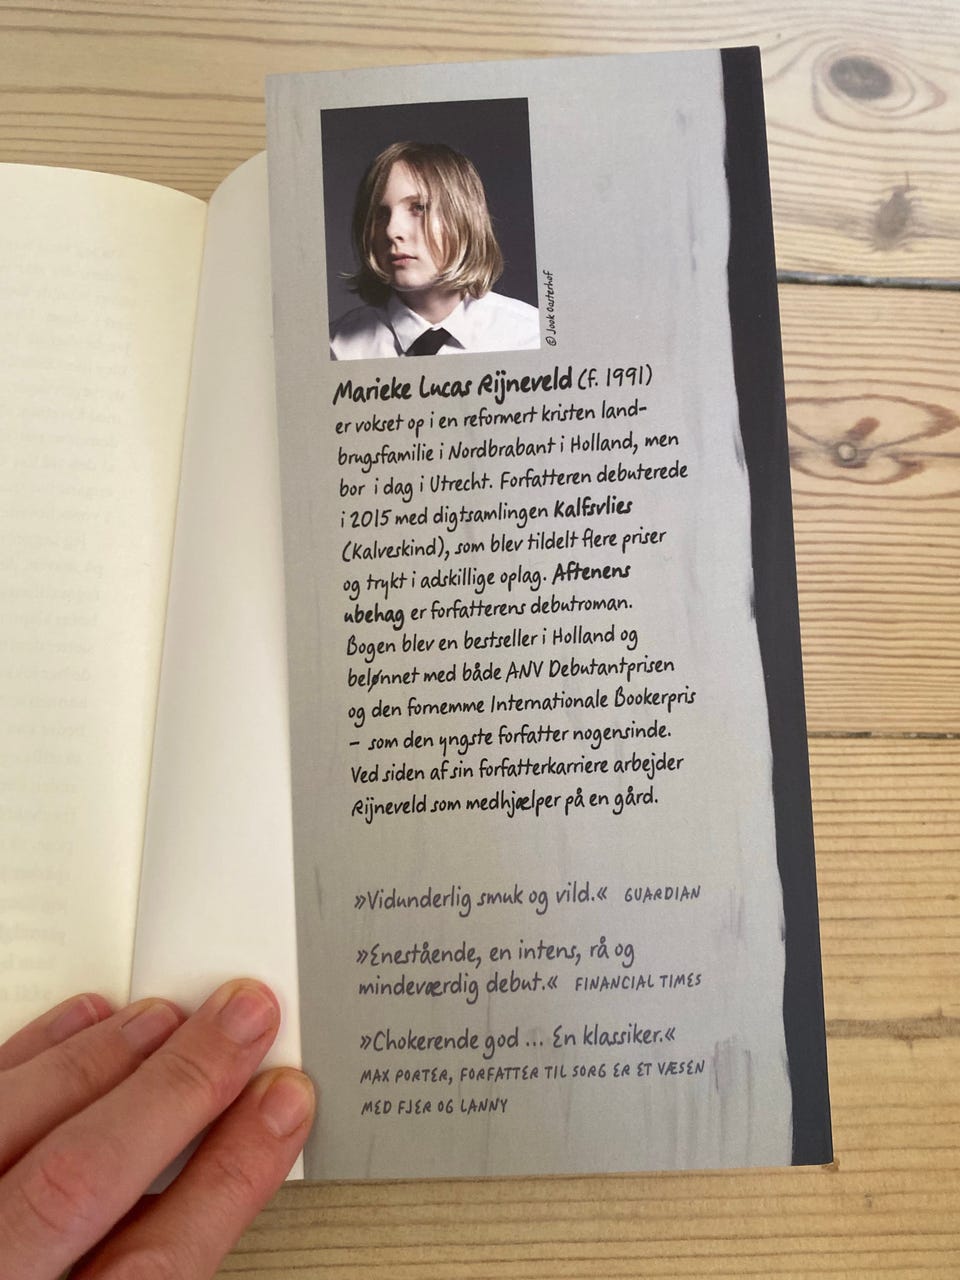 © Jouk Oosterhof
Marieke Lucas Rijneveld (f. 1991)
er vokset op i en reformert kristen land-
brugsfamilie i Nordbrabant i Holland, men
bor i dag i Utrecht. Forfatteren debuterede
i 2015 med digtsamlingen Kalfsvlies
(Kalveskind), som blev tildelt flere priser
og trykt i adskillige oplag. Aftenens
ubehag er forfatterens debutroman.
Bogen blev en bestseller i Holland og
belønnet med både ANV Debutantprisen
og den fornemme Internationale Bookerpris
– som den yngste forfatter nogensinde.
Ved siden af sin forfatterkarriere arbejder
Rijneveld som medhjælper på en gård.
»Vidunderlig smuk og vild.« GUARDIAN
»Enestående, en intens, rå og
mindeværdig debut.« FINANCIAL TIMES
»Chokerende god ... En klassiker.«
MAX PORTER, FORFATTER TIL SORG ER ET VÆSEN
MED FJER OG LANNY